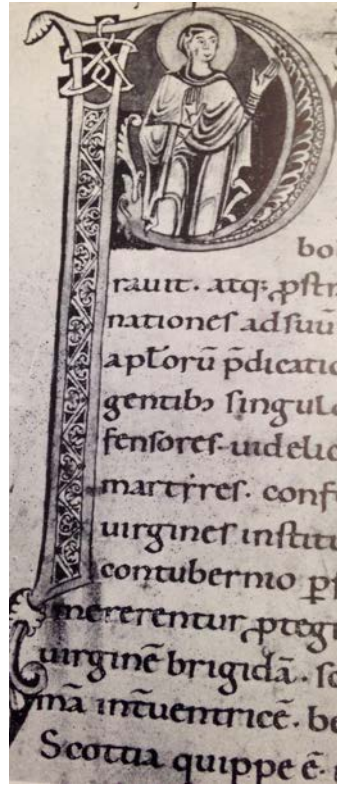 P
bo
rauit. atq: ꝓstr
nationes ad suū
aptorū p̄dicatio
gentibꝫ singul
fensores. uidelic
martyres. conf
uirgines institu
contubernio
mererentur ꝓteg
uirginē brigidā. sc
mā int̄uentricē. be
Scottia quippe ē.